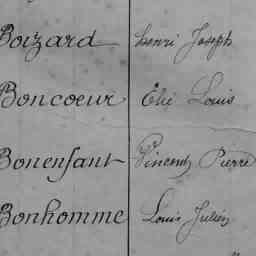 Boizard Henri Joseph
Boncoeur Elie Louis
Bonenfant Vincent Pierre
Bonhomme Louis Julien